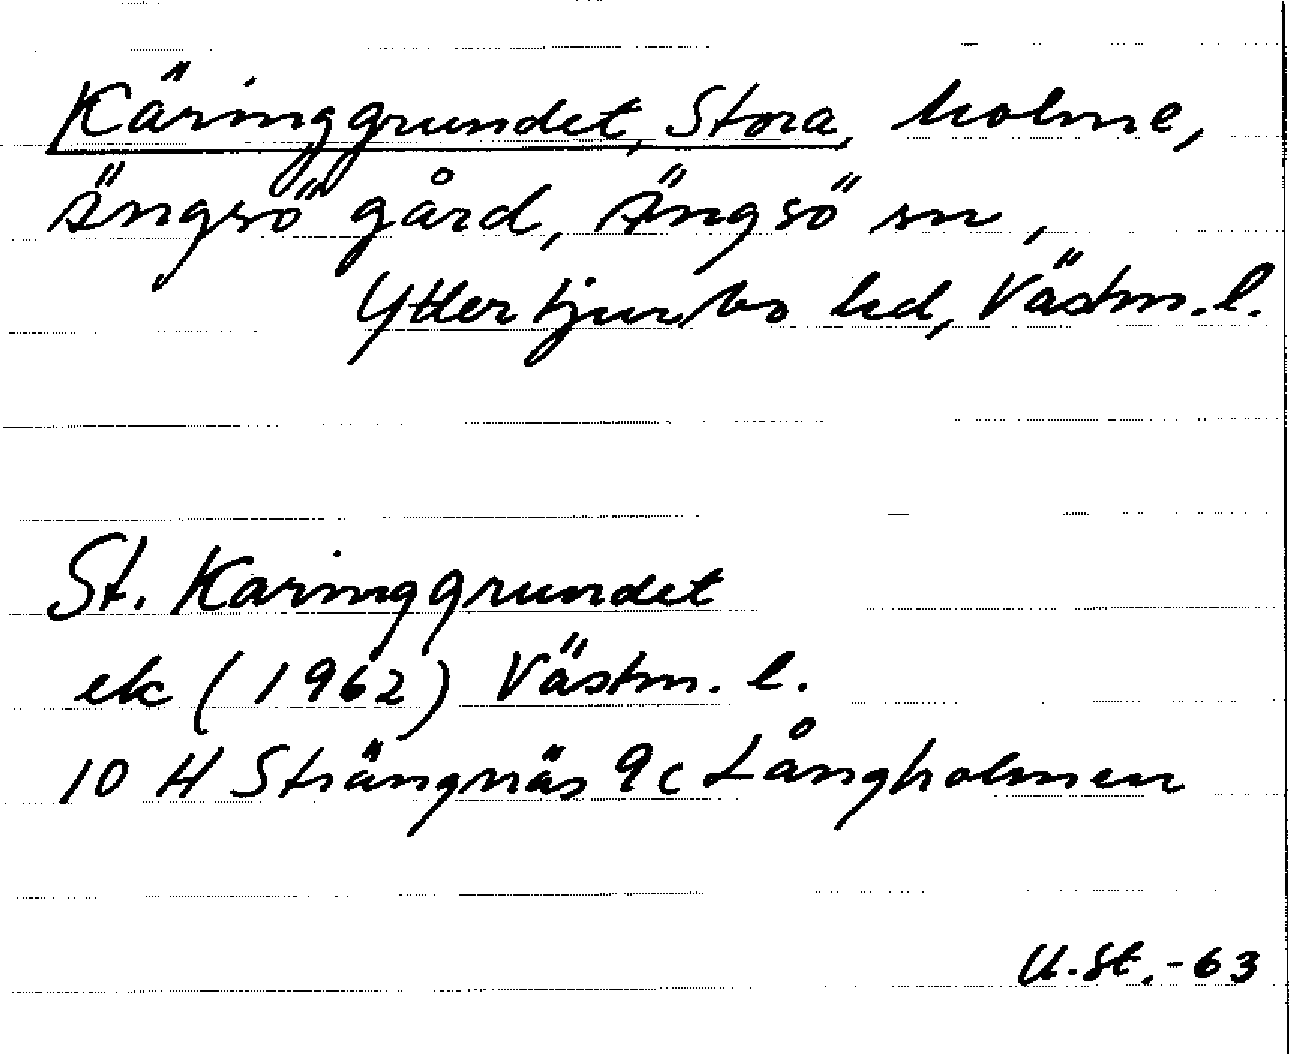 Käringgrundet, Stora, holme,
Ängsö gård, Ängsö sn,
Yttertjurbo hd, Västm. l.
St. Karinggrundet
ek (1962) Västm. l.
10 H Strängnäs 9c Långholmen
U.St.-63